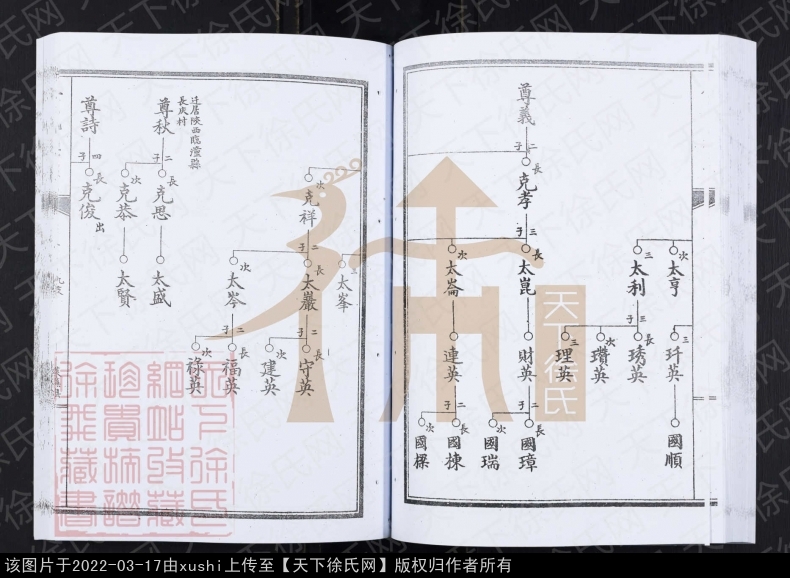 尊義
二子
長
克孝
三子
次
太亨
三
太利
三子
長
太崑
次
太崙
三
玕英
長
琇英
次
瓚英
三
理英
財英
連英
國順
二子
長
國璋
次
國瑞
二子
長
國棟
次
國樑
次
克祥
二子
三
太峯
長
太巖
次
太岑
二子
長
守英
次
建英
二子
長
福英
次
祿英
迁居陝西臨潼縣
長虎村
尊秋
二子
長
克思
次
克恭
太盛
太賢
尊詩
四子
長
克俊
出
天下徐氏
天下徐氏网
该图片于2022-03-17由xushi上传至【天下徐氏网】版权归作者所有